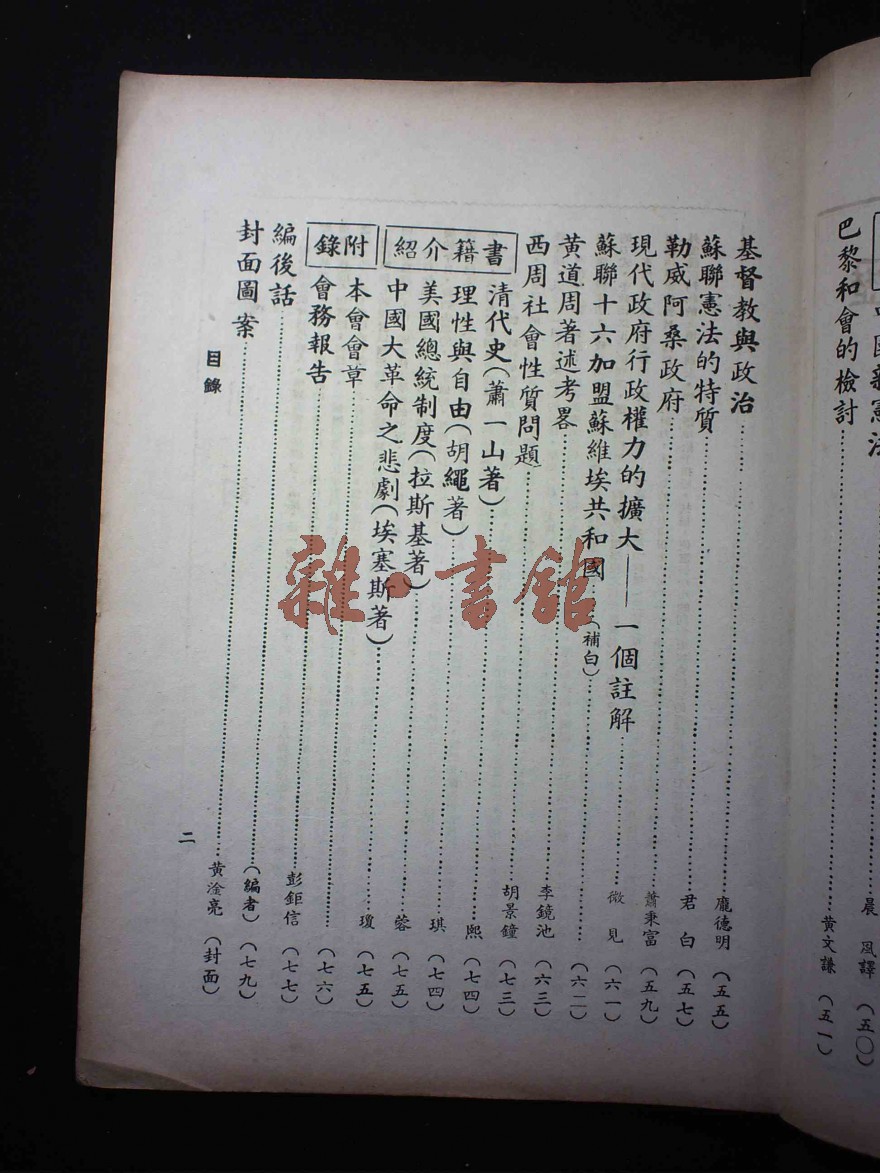 晨風譯(五〇)
巴黎和會的檢討……黃文謙(五一)
基督教與政治……龐德明(五五)
蘇聯憲法的特質……君白(五七)
勒威阿桑政府……蕭秉富(五九)
現代政府行政權力的擴大——一個註解……微見(六一)
蘇聯十六加盟蘇維埃共和國(補白)……(六二)
黃道周著述考畧……李鏡池(六三)
西周社會性質問題……胡景鐘(七三)
書籍介紹
清代史(蕭一山著)……熙(七四)
理性與自由(胡繩著)……琪(七四)
美國總統制度(拉斯基著)……蓉(七五)
中國大革命之悲劇(埃塞斯著)……瓊(七五)
附錄
本會會草……(七六)
會務報告……彭鉅信(七七)
編後話……(編者)(七九)
封面圖案……黃淦亮(封面)
目錄
二
雜·書館